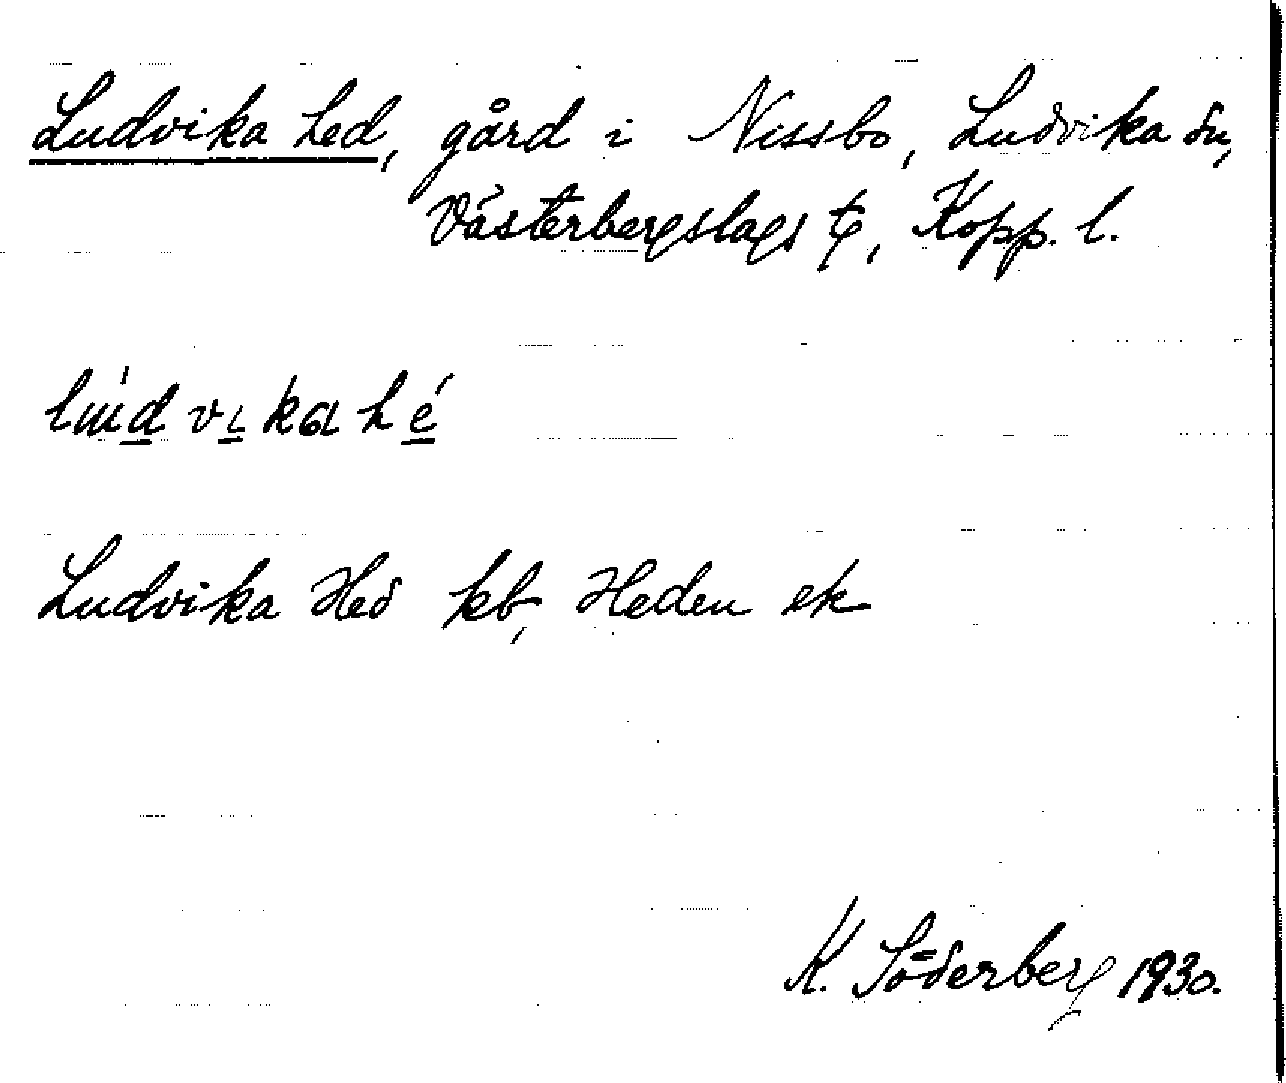 Ludvika hed, gård i Nissbo, Ludvika sn,
Västerbergslags tg, Kopp. l.
Ludvika Hed kb, Heden ek
K. Söderberg 1930.